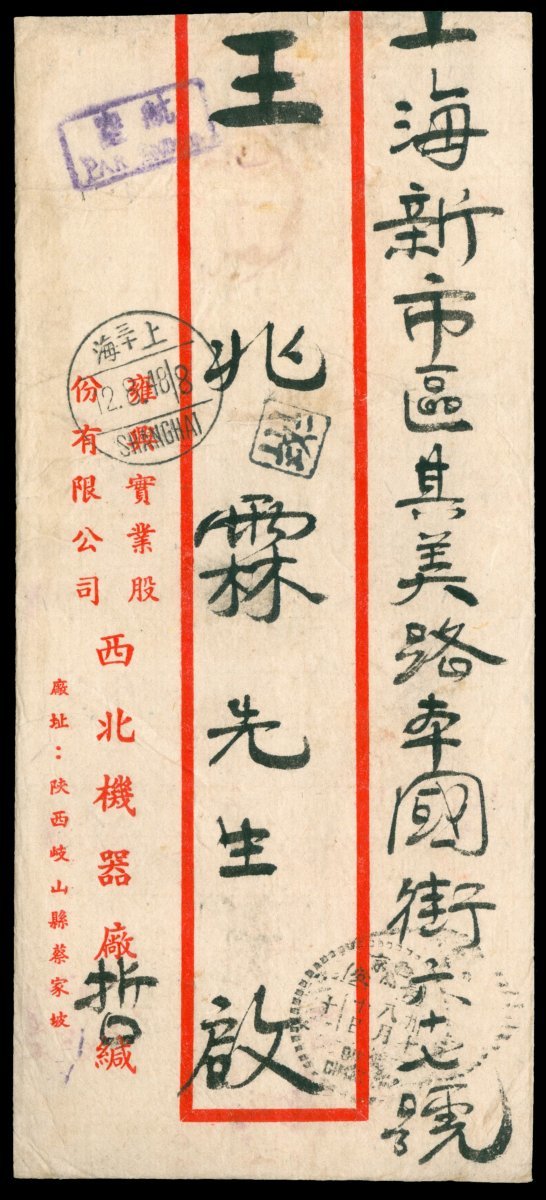 上海新市區其美路奉國街六十七號
王兆霖先生啟
航空
PAR AVION
上海
12.8.48
18
SHANGHAI
雍興實業股
份有限公司
西北機器廠 緘
廠址：陝西岐山縣蔡家坡
八月
十日